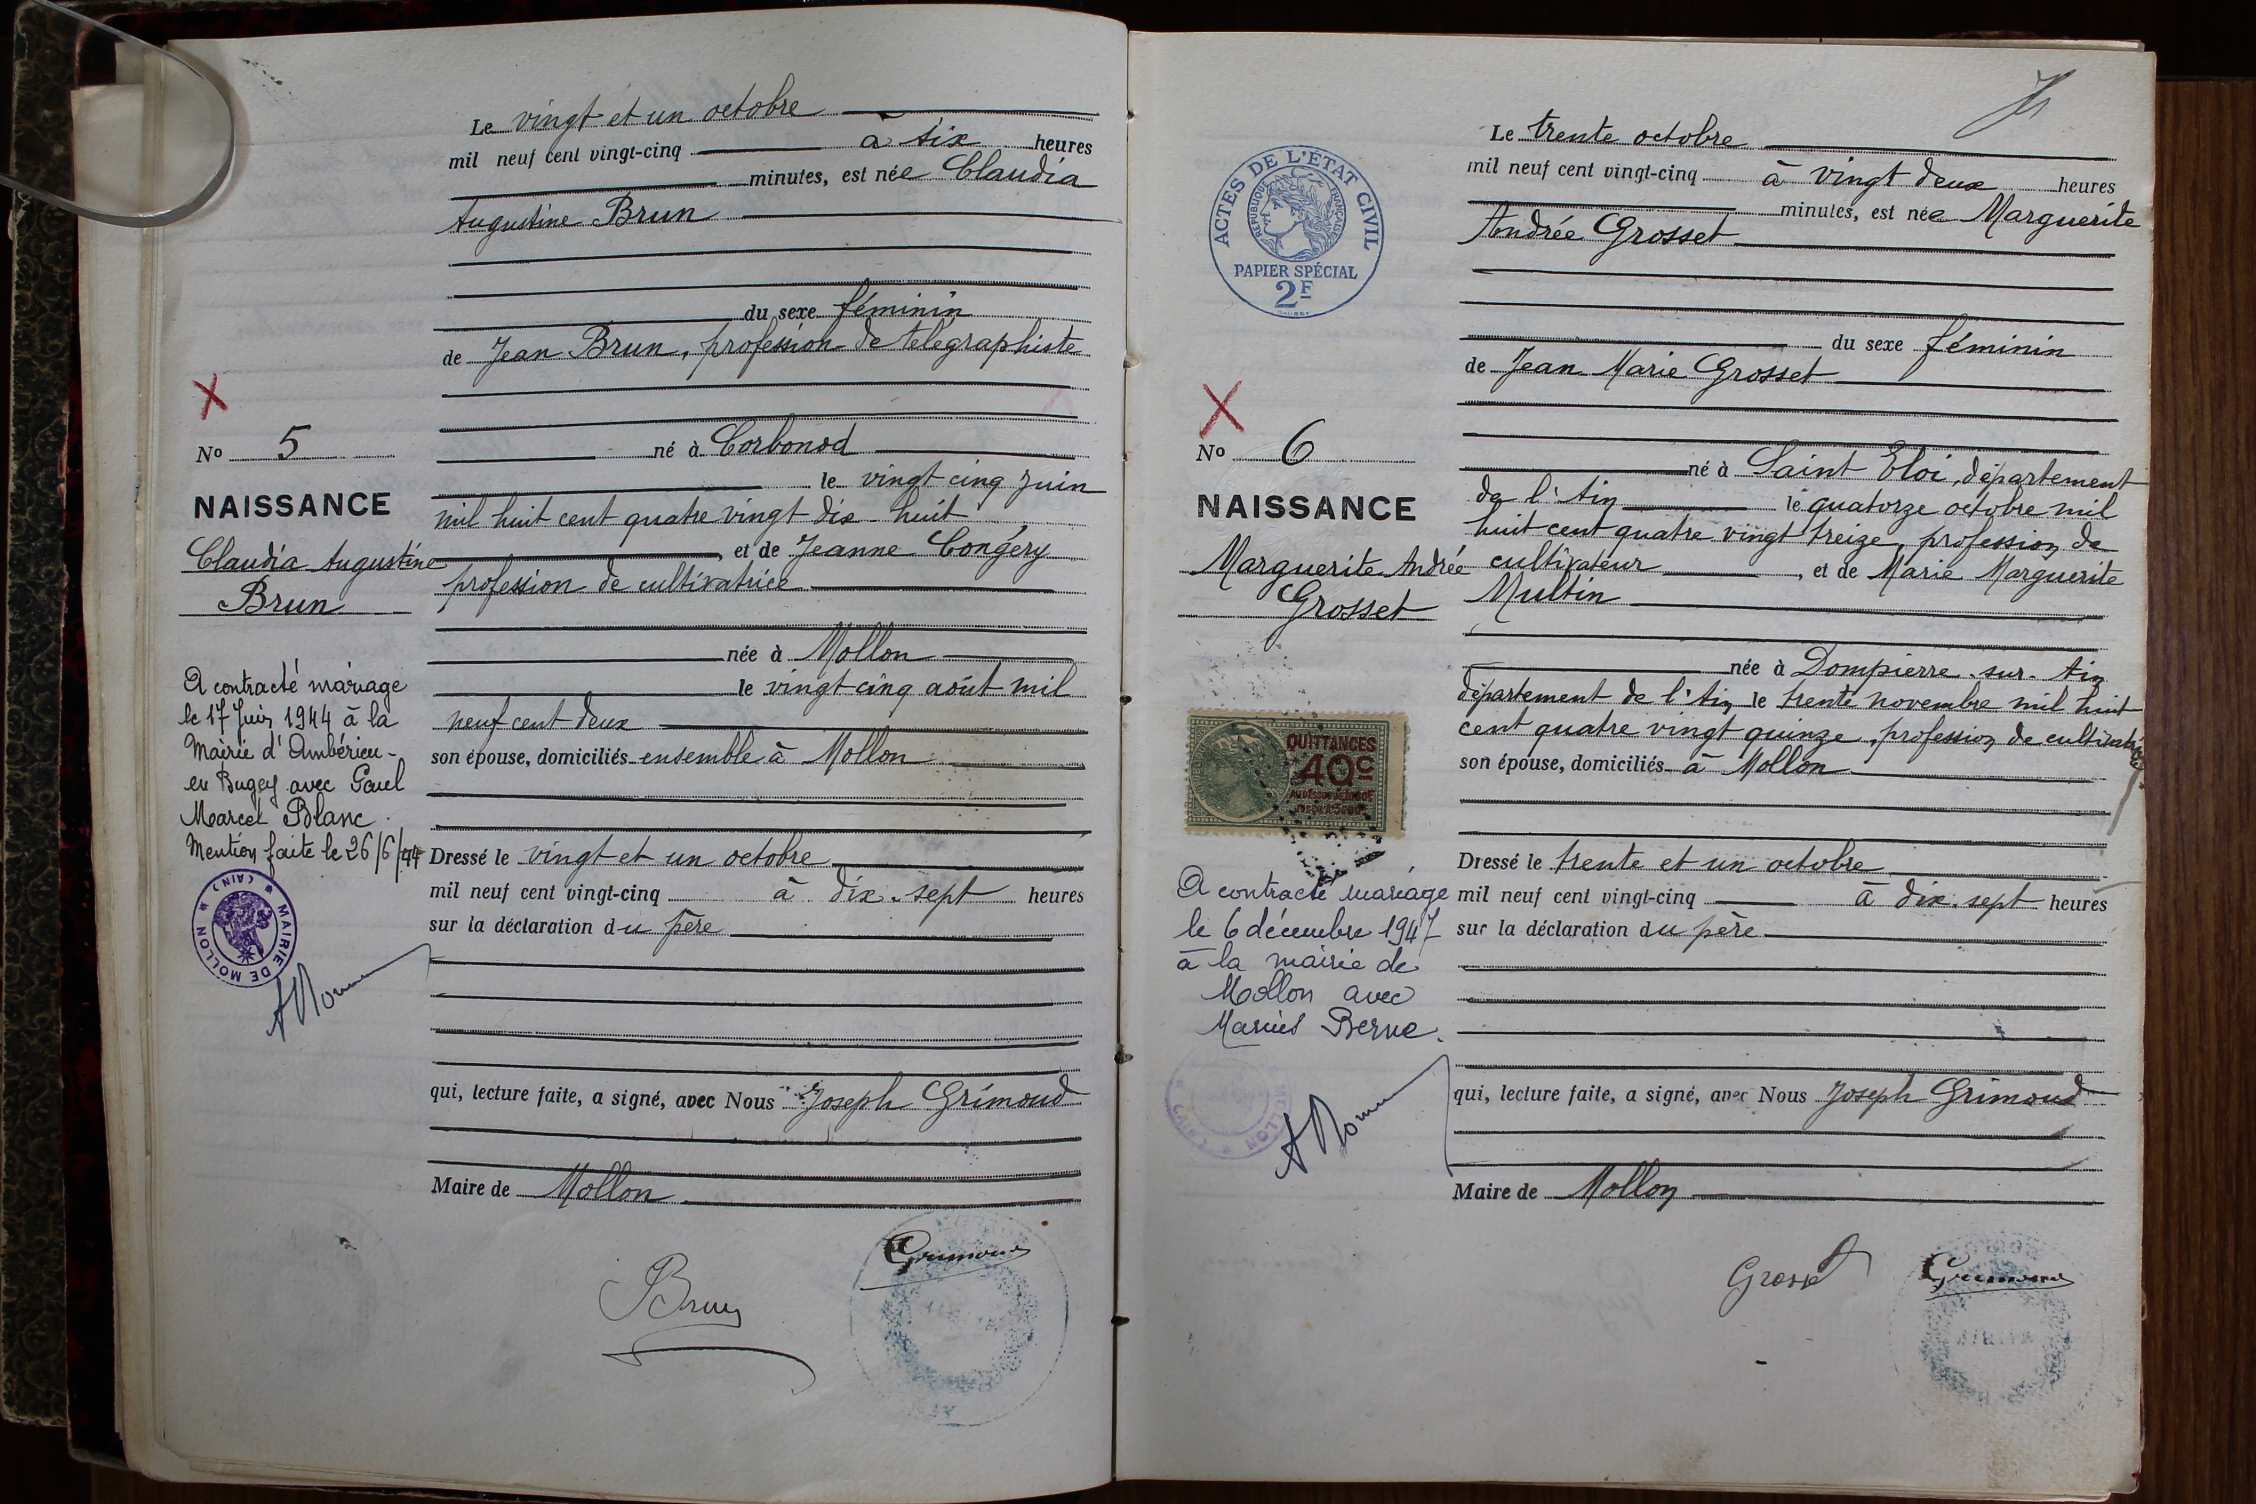 Le vingt et un octobre
mil neuf cent vingt-cinq à six heures
minutes, est née Claudia
Augustine Brun
du sexe féminin
de Jean Brun, profession de télégraphiste
né à Corbonod
le vingt cinq juin
mil huit cent quatre vingt dix-huit
et de Jeanne Congery
profession de cultivatrice
née à Mollon
le vingt-cinq août mil
neuf cent deux
son épouse, domiciliés ensemble à Mollon
Dressé le vingt et un octobre
mil neuf cent vingt-cinq à dix-sept heures
sur la déclaration du père
qui, lecture faite, a signé, avec Nous Joseph Grimoud
Maire de Mollon
Brun
Grimoud
No 5
NAISSANCE
Claudia Augustine
Brun
A contracté mariage
le 17 Juin 1944 à la
Mairie d'Ambérieu-
en Bugey avec Paul
Marcel Blanc.
Mention faite le 26/6/44
MAIRIE DE MOLLON
(AIN)
Le trente octobre
mil neuf cent vingt-cinq à vingt deux heures
minutes, est née Marguerite
Andrée Grosset
du sexe féminin
de Jean Marie Grosset
né à Saint Eloi, département
de l'Ain le quatorze octobre mil
huit cent quatre vingt treize, profession de
cultivateur, et de Marie Marguerite
Multin
née à Dompierre-sur-Ain
département de l'Ain le trente novembre mil huit
cent quatre vingt quinze, profession de cultivatrice
son épouse, domiciliés à Mollon
Dressé le trente et un octobre
mil neuf cent vingt-cinq à dix-sept heures
sur la déclaration du père
qui, lecture faite, a signé, avec Nous Joseph Grimoud
Maire de Mollon
Grosset
Grimoud
ACTES DE L'ÉTAT CIVIL
RÉPUBLIQUE FRANÇAISE
PAPIER SPÉCIAL
2F
No 6
NAISSANCE
Marguerite Andrée
Grosset
QUITTANCES
40c
A contracté mariage
le 6 décembre 1947
à la mairie de
Mollon avec
Marius Berne.